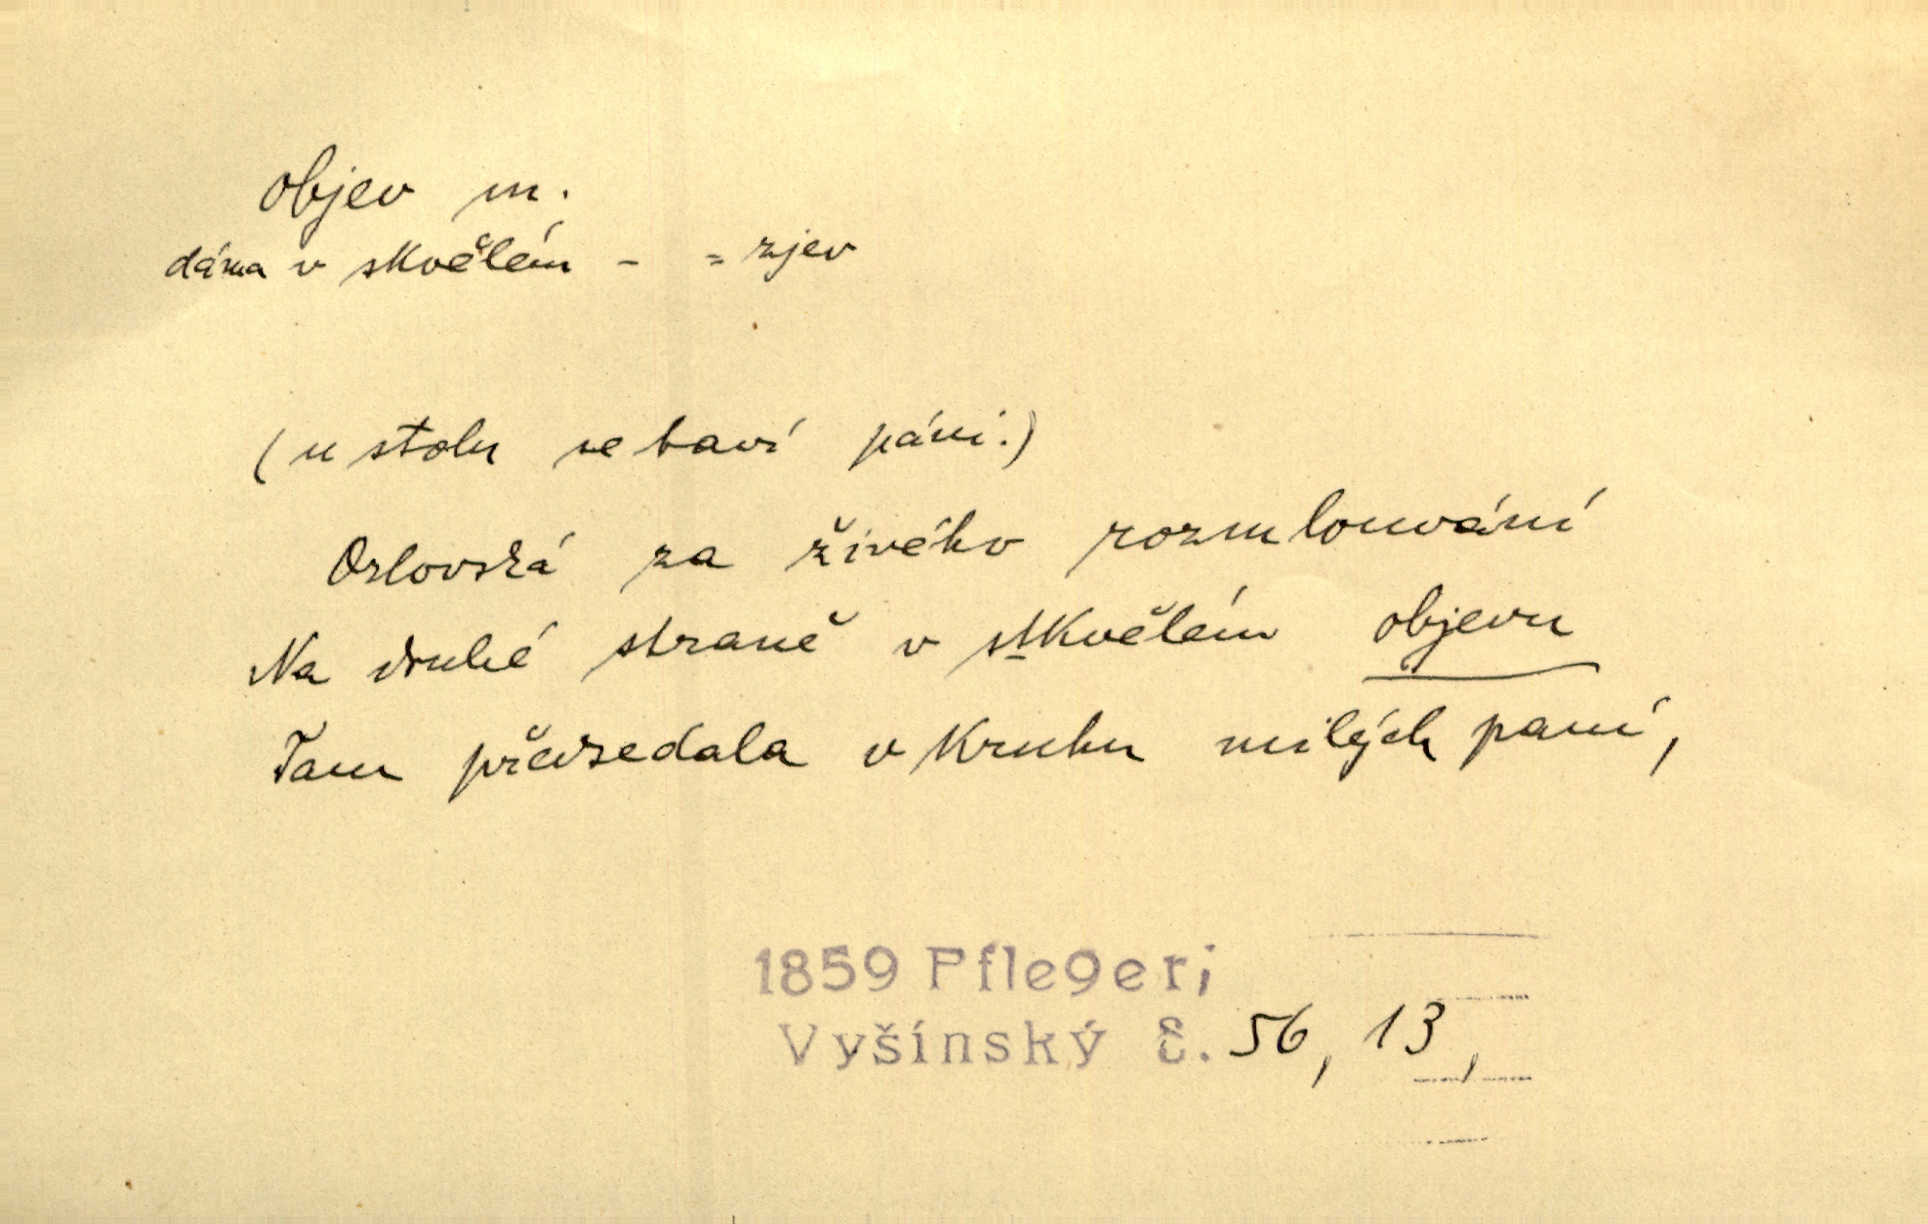 objev m.
dáma v skvělém - = zjev
(u stolu se baví páni.)
Orlovská za živého rozmlouvání
Na druhé straně v stkvělém objevu
Tam předsedala v kruhu milých paní,
1859 Pfleger;
Vyšínský č. 56, 13,